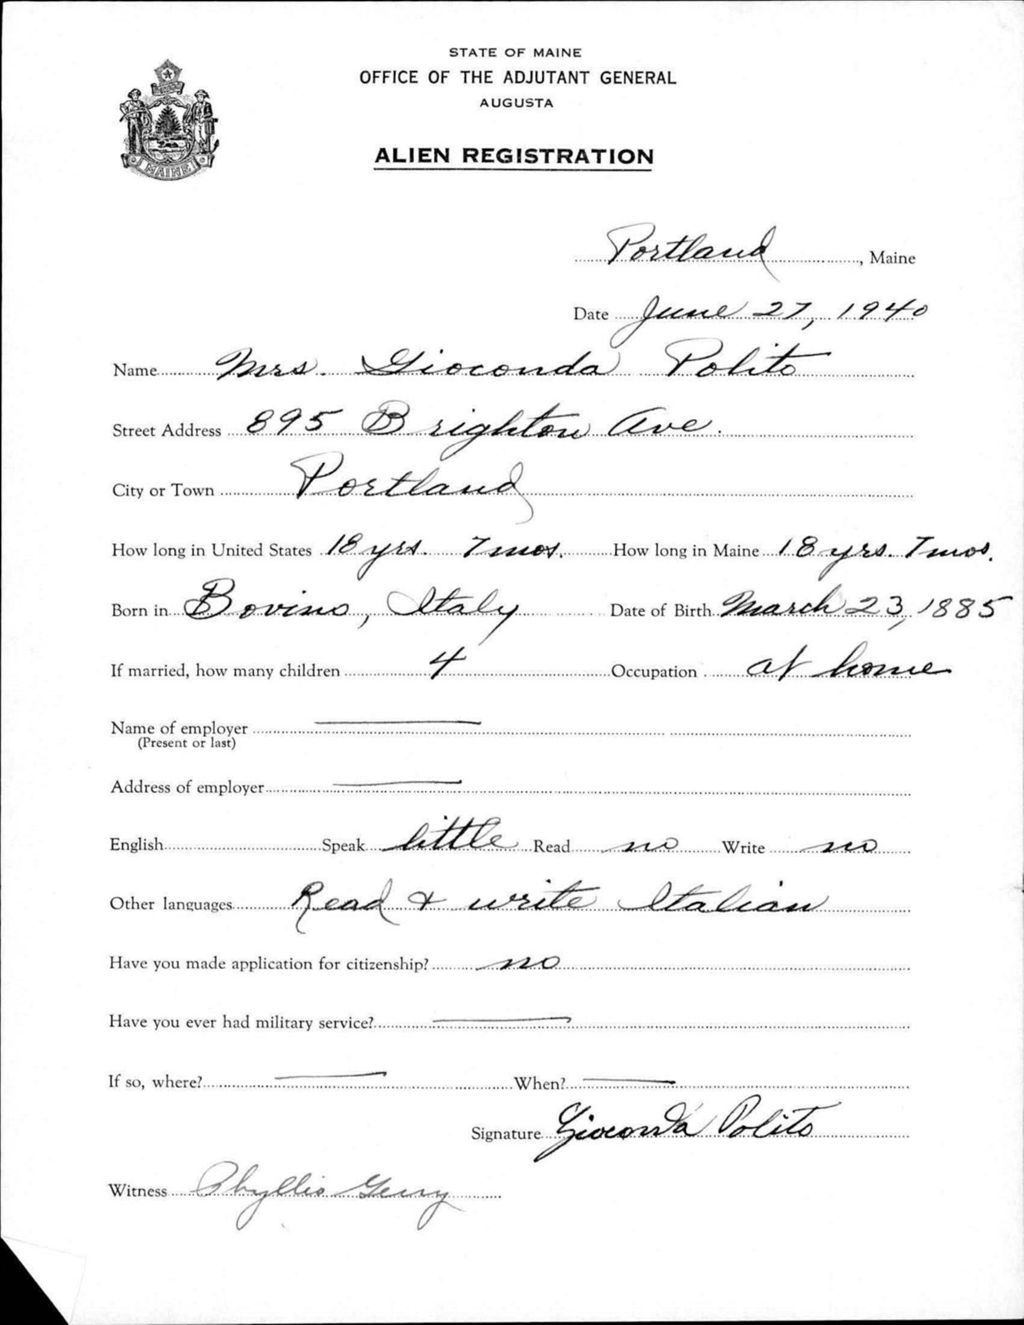 STATE OF MAINE
OFFICE OF THE ADJUTANT GENERAL
AUGUSTA
ALIEN REGISTRATION
MAINE
Portland, Maine
Date June 27, 1940
Name Mrs. Gioconda Polito
Street Address 895 Brighton Ave.
City or Town Portland
How long in United States 18 yrs. 7 mos. How long in Maine 18 yrs. 7 mos.
Born in Bovino, Italy Date of Birth March 23, 1885
If married, how many children 4 Occupation at home
Name of employer
(Present or last)
Address of employer
English Speak little Read no Write no
Other languages Read & write Italian
Have you made application for citizenship? no
Have you ever had military service?
If so, where? When?
Signature Gioconda Polito
Witness Phyllis Gerry